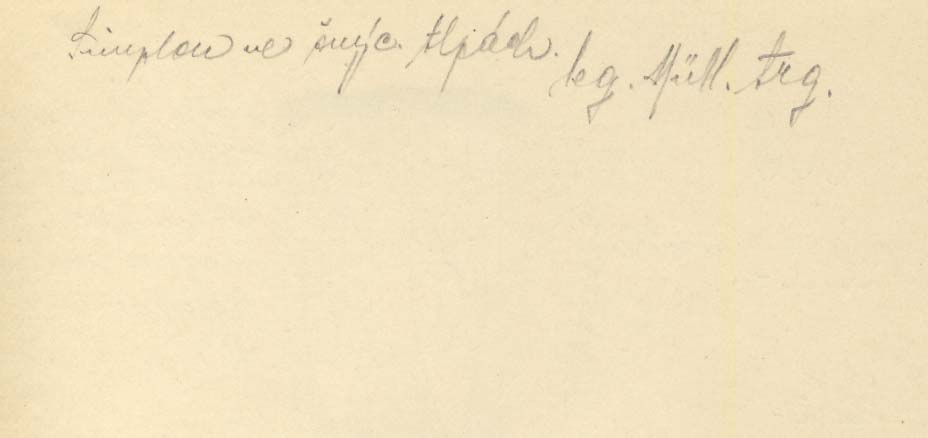 Simplon ve švýc. Alpách.
leg. Müll. Arg.